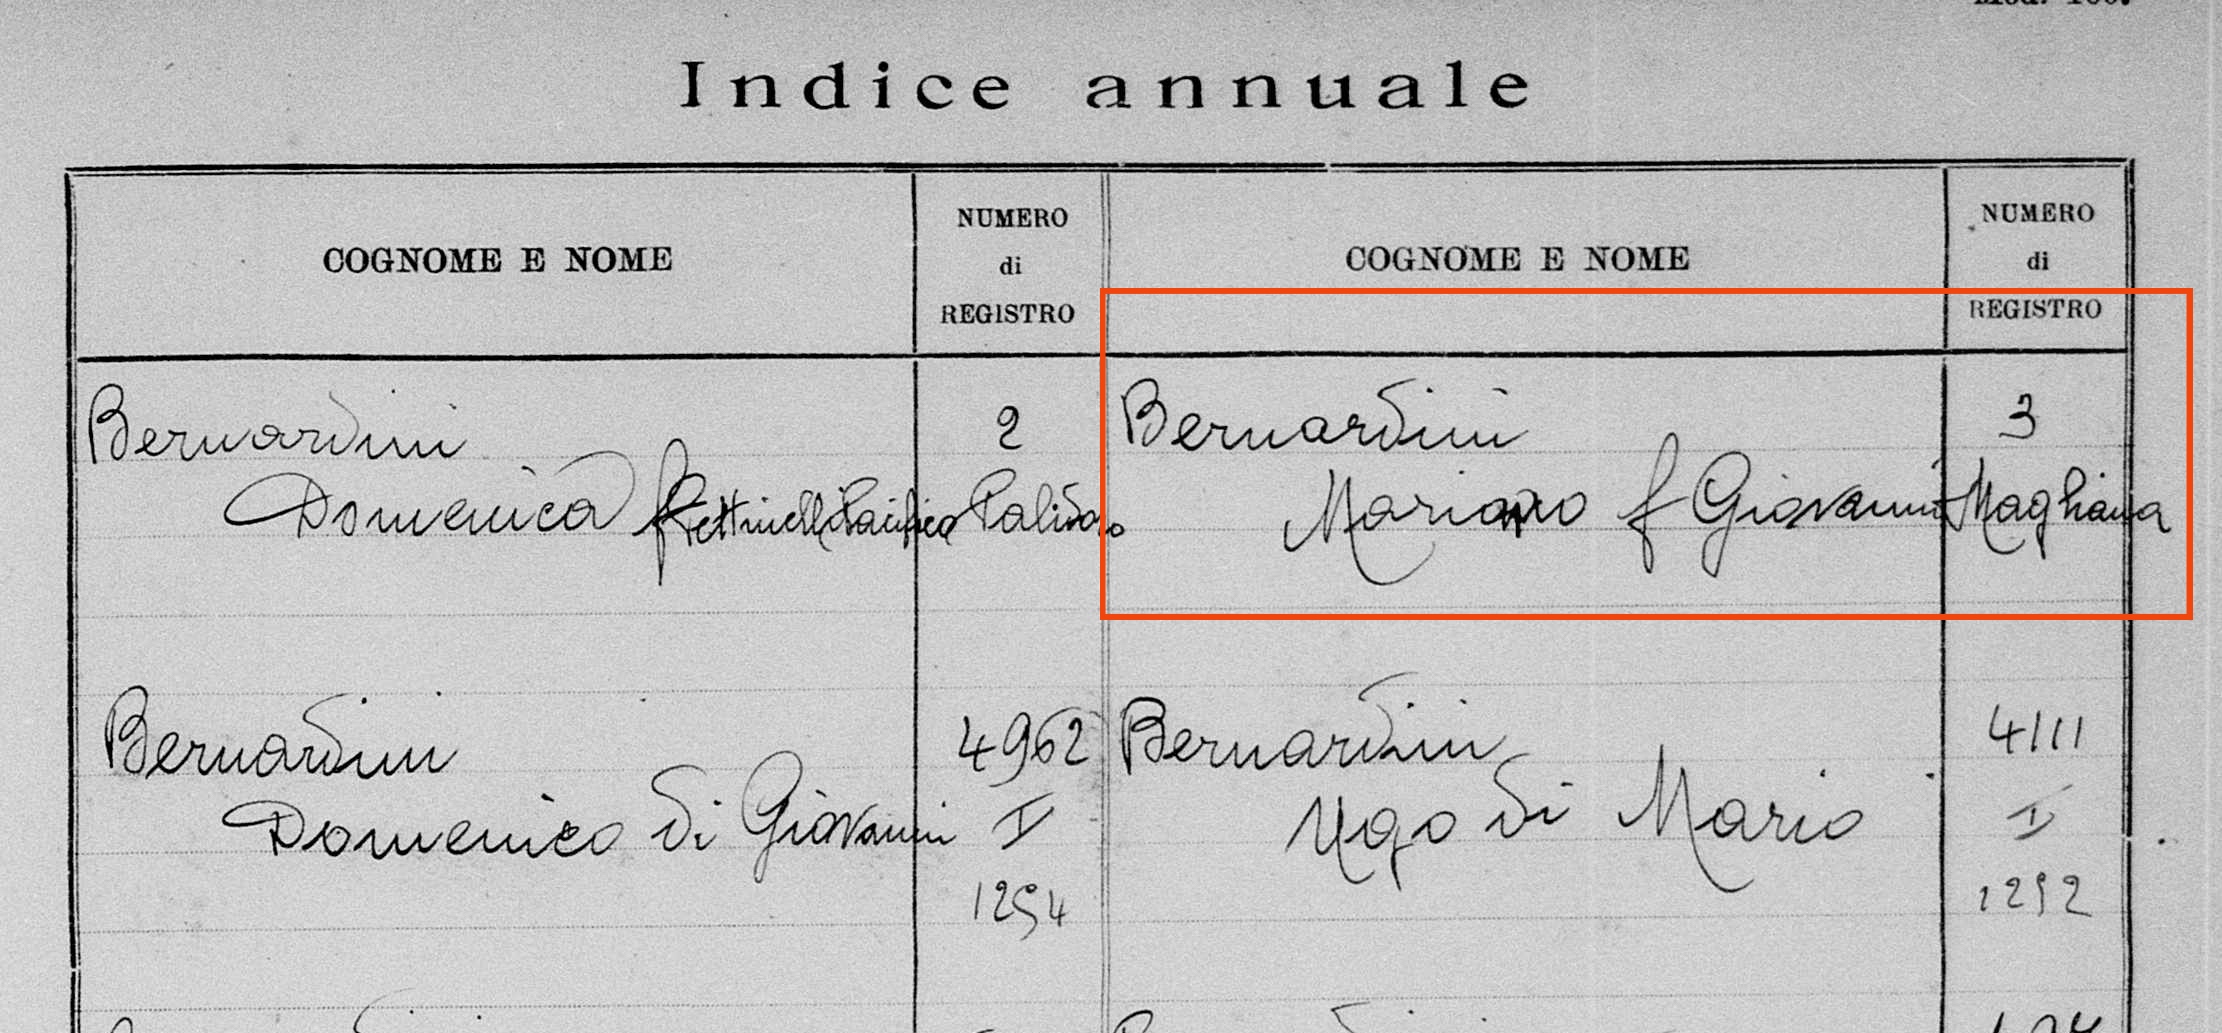 Indice annuale
COGNOME E NOME
NUMERO
di
REGISTRO
COGNOME E NOME
NUMERO
di
REGISTRO
Bernardini
2
Domenica f Pettinelli Pacifico Palidoro
Bernardini
3
Mariano f Giovanni Magliana
Bernardini
4962
Domenico di Giovanni I
1254
Bernardini
4111
Ugo di Mario I
1252